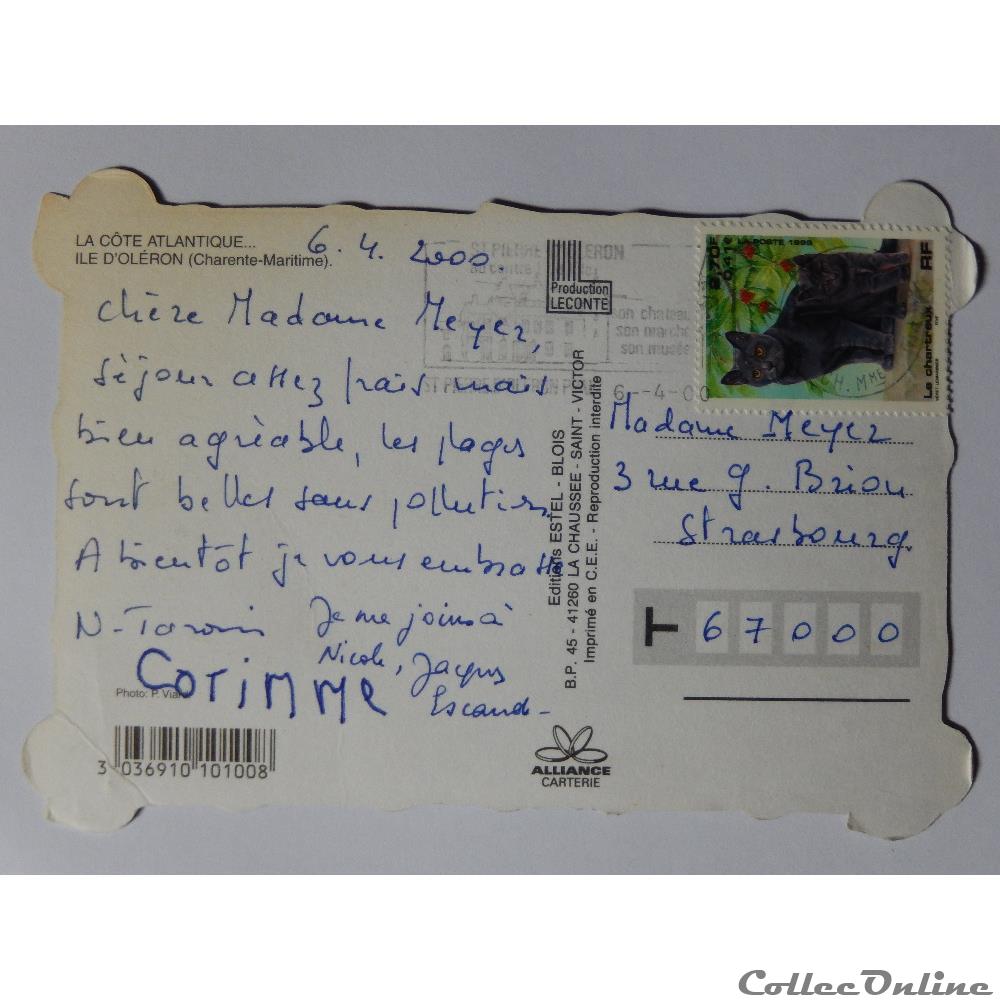 LA CÔTE ATLANTIQUE...
ILE D'OLÉRON (Charente-Maritime).
6.4.2000
Chère Madame Meyer,
Séjour assez frais mais
bien agréable, les plages
sont belles sans pollution
A bientôt je vous embrasse
N-
Je me joins à
Nicole, Jacques
Corinne
Photo: P.
3 036910 101008
ST PIERRE D'OLERON
son chateau
son marché
son musée
6-4-00
Production
LECONTE
Editions ESTEL - BLOIS
B.P. 45 - 41260 LA CHAUSSEE - SAINT - VICTOR
Imprimé en C.E.E. - Reproduction interdite
ALLIANCE
CARTERIE
2,70F
0,41€
LA POSTE 1999
RF
Le chartreux
Madame Meyer
3 rue G. Brion
Strasbourg.
T 67000
CollecOnline